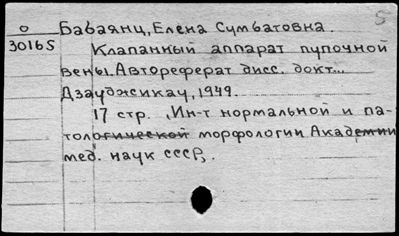 0 Бабаянц, Елена Сумбатовна. 5
30165 Клапанный аппарат пупочной
вены. Автореферат дисс. докт...
Дзауджикау, 1949.
17 стр. Ин-т нормальной и па-
тологической морфологии Академии
мед. наук СССР.